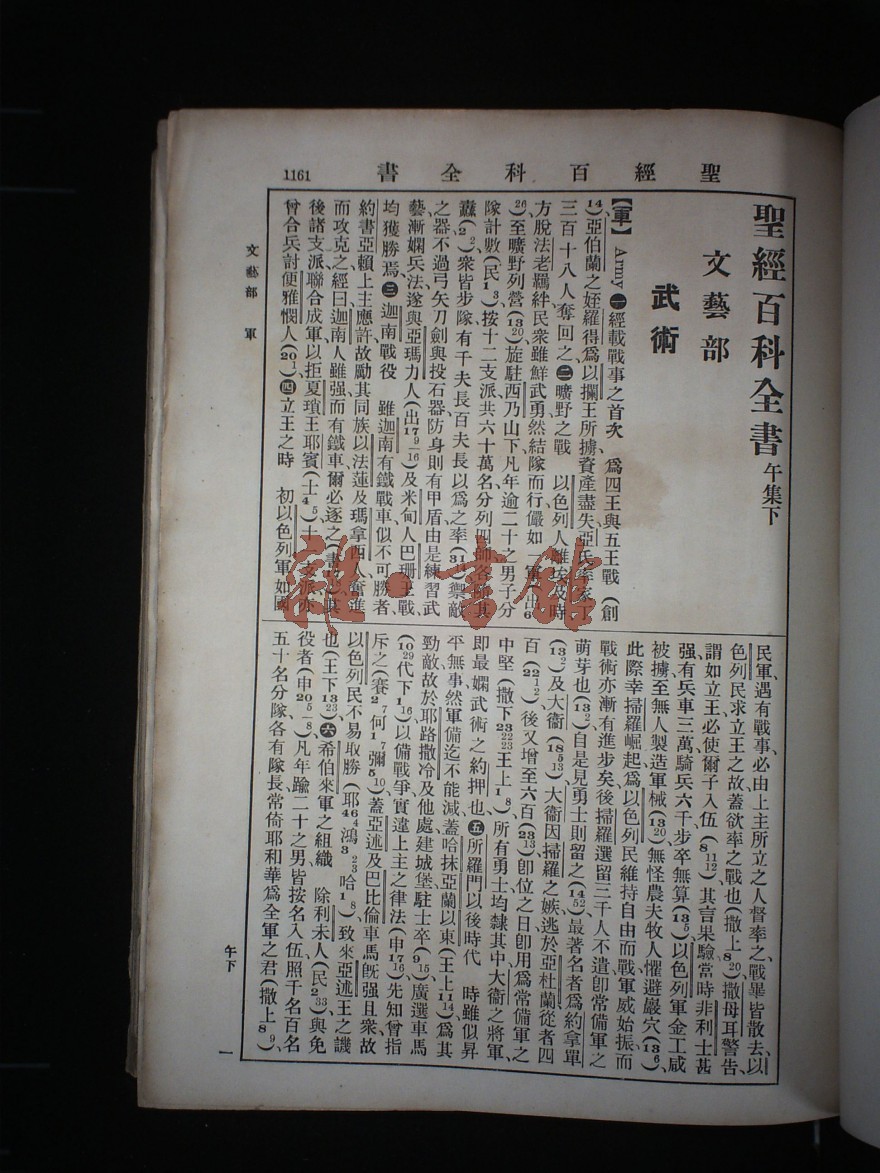 聖經百科全書
1161
聖經百科全書 午集下
文藝部
武術
【軍】 Army ㊀經載戰事之首次 爲四王與五王戰(創
14)亞伯蘭之姪羅得爲以攔王所擄資產盡失亞氏率家丁
三百十八人奪回之㊁曠野之戰 以色列人離埃及時
方脫法老羈絆民衆雖鮮武勇然結隊而行儼如一軍(出6
26)至曠野列營(13 20)旋駐西乃山下凡年逾二十之男子分
隊計數(民1 3)按十二支派共六十萬名分列四師各師其
纛(2 2)衆皆步隊有千夫長百夫長以爲之率(31 14)禦敵
之器不過弓矢刀劍與投石器防身則有甲盾由是練習武
藝漸嫻兵法遂與亞瑪力人(出17 9—16)及米甸人巴珊王戰
均獲勝焉㊂迦南戰役 雖迦南有鐵戰車似不可勝者
約書亞賴上主應許故勵其同族以法蓮及瑪拿西人奮進
而攻克之經曰迦南人雖强而有鐵車爾必逐之(書17 18)其
後諸支派聯合成軍以拒夏瑣王耶賓(士4 5)十一支派亦
曾合兵討便雅憫人(20 1)㊃立王之時 初以色列軍如國
民軍遇有戰事必由上主所立之人督率之戰畢皆散去以
色列民求立王之故蓋欲率之戰也(撒上8 20)撒母耳警告
謂如立王必使爾子入伍(8 11 12)其言果驗當時非利士甚
强有兵車三萬騎兵六千步卒無算(13 5)以色列軍金工咸
被擄至無人製造軍械(13 20)無怪農夫牧人懼避巖穴(13 6)
此際幸掃羅崛起爲以色列民維持自由而戰軍威始振而
戰術亦漸有進步矣後掃羅選留三千人不遣卽常備軍之
萌芽也(13 2)自是見勇士則留之(14 52)最著名者爲約拿單
(13 2)及大衞(18 5 13)大衞因掃羅之嫉逃於亞杜蘭從者四
百(22 1 2)後又增至六百(23 13)卽位之日卽用爲常備軍之
中堅(撒下23 22 23王上1 8)所有勇士均隸其中大衞之將軍
卽最嫻武術之約押也㊄所羅門以後時代 時雖似昇
平無事然軍備迄不能減蓋哈抹亞蘭以東(王上11 14)爲其
勁敵故於耶路撒冷及他處建城堡駐士卒(9 15)廣選車馬
(10 29代下1 16)以備戰爭實違上主之律法(申17 16)先知曾指
斥之(賽2 7何1 7彌5 10)蓋亞述及巴比倫車馬旣强且衆故
以色列民不易取勝(耶46 4鴻3 2 3哈1 8)致來亞述王之譏
也(王下18 23)㊅希伯來軍之組織 除利未人(民2 33)與免
役者(申20 5—8)凡年踰二十之男皆按名入伍照千名百名
五十名分隊各有隊長常倚耶和華爲全軍之君(撒上8 9)
文藝部 軍
午下
一
雜·書館